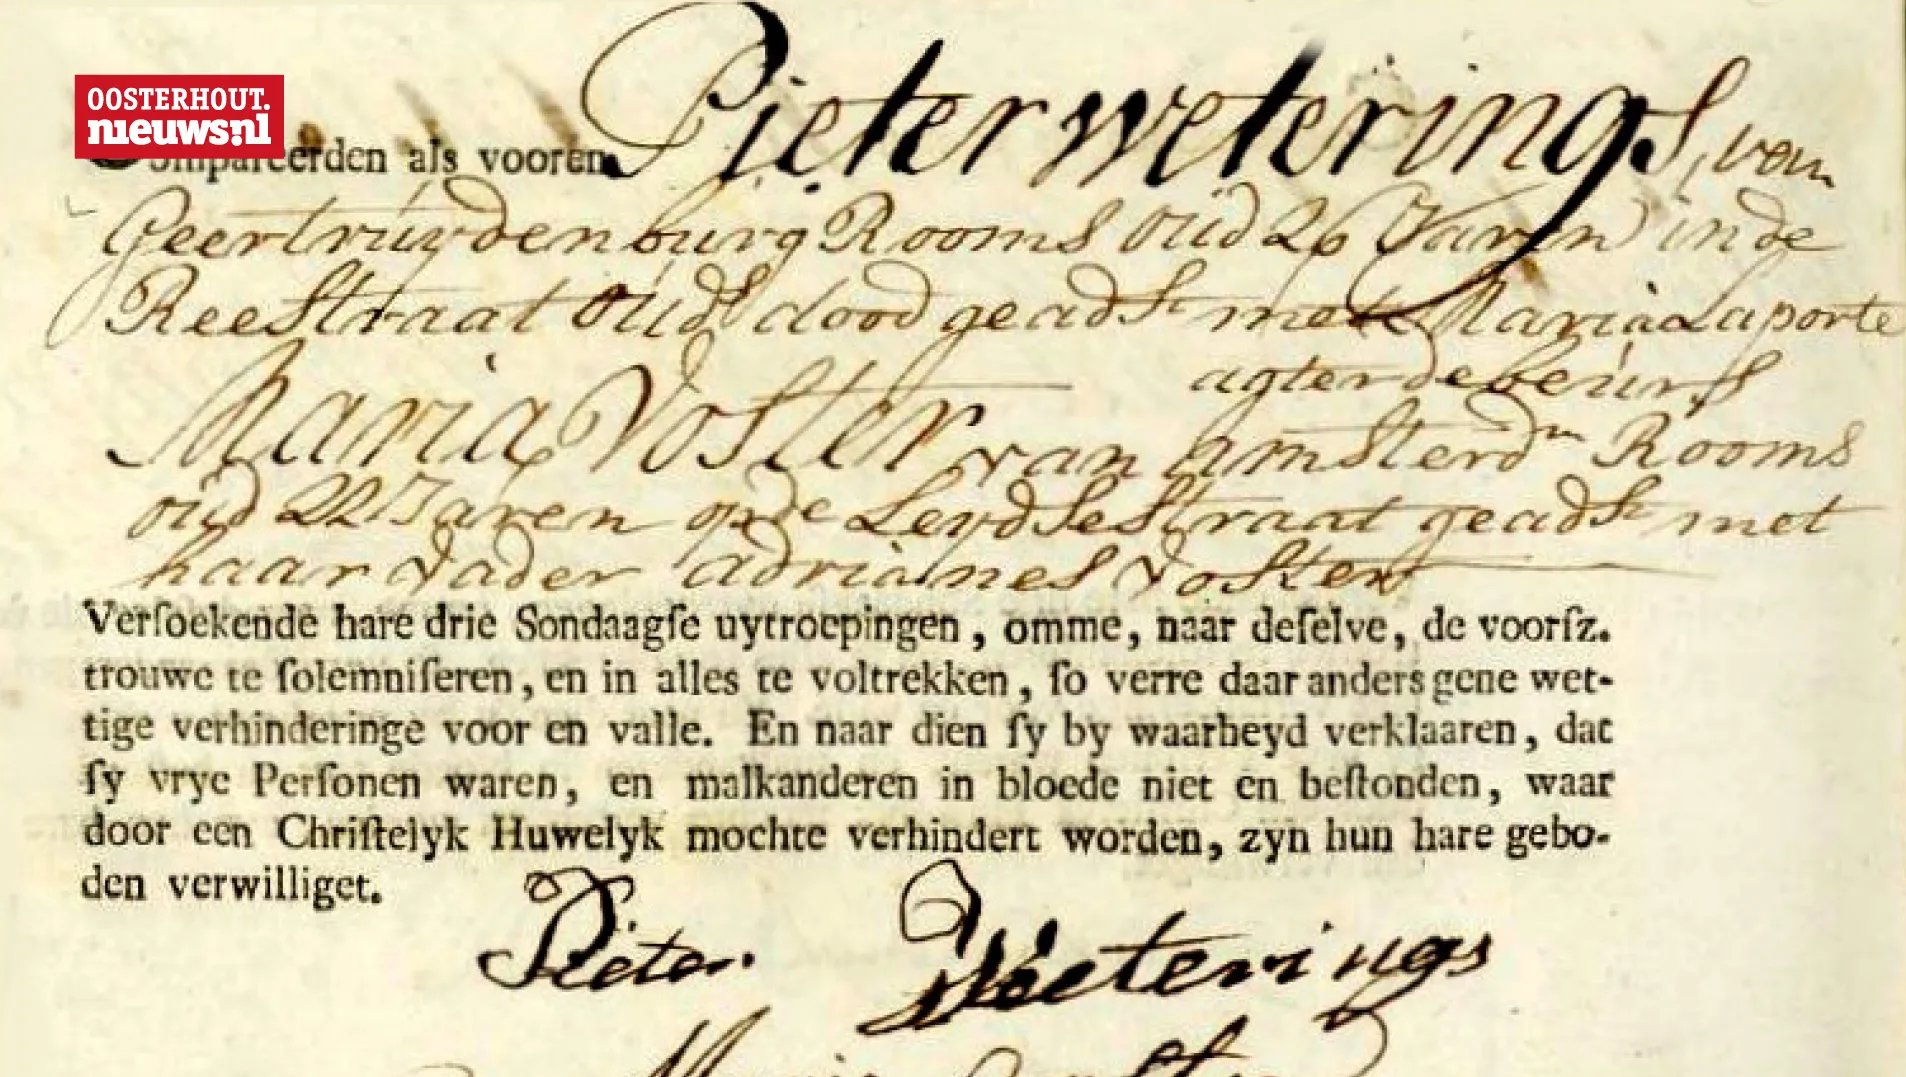 OOSTERHOUT.
nieuws.nl
Compareerden als vooren Pieter Weterings, van
Geertruydenburg Rooms oud 26 Jaren in de
Reestraat ouds dood geadst met Maria Laporte
agter de beurs
Maria Voster van Amsterdm Rooms
oud 22 Jaren op de Leydsestraat geadst met
haar vader Adrianes Voster
Verſoekende hare drie Sondaagſe uytroepingen, omme, naar deſelve, de voorſz.
trouwe te ſolemniſeren, en in alles te voltrekken, ſo verre daar anders gene wet-
tige verhinderinge voor en valle. En naar dien ſy by waarheyd verklaaren, dat
ſy vrye Perſonen waren, en malkanderen in bloede niet en beſtonden, waar
door een Chriſtelyk Huwelyk mochte verhindert worden, zyn hun hare gebo-
den verwilliget.
Pieter Weterings
Maria